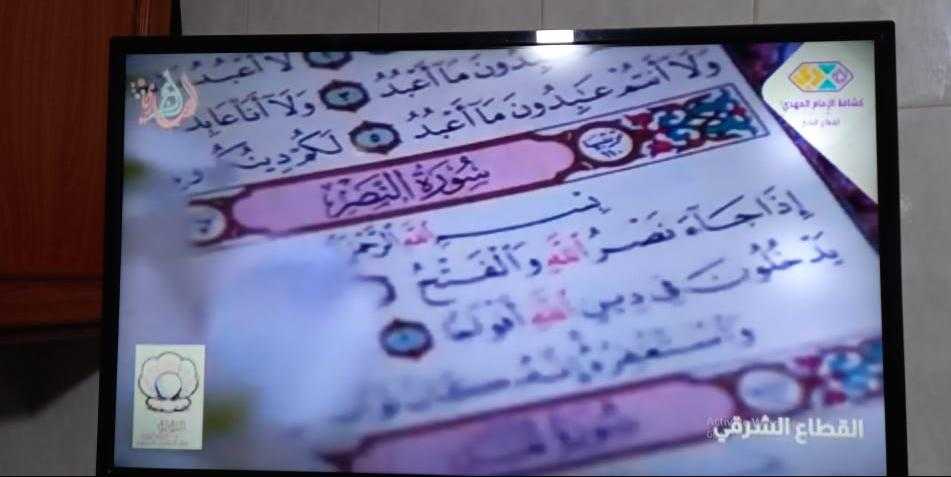 لَا أَعْبُدُ
عَٰبِدُونَ مَآ أَعْبُدُ ٣ وَلَآ أَنَا۠ عَابِدٌ
وَلَآ أَنتُمْ عَٰبِدُونَ مَآ أَعْبُدُ ٥ لَكُمْ دِينُكُمْ
سُورَةُ النَّصْرِ
بِسْمِ اللَّهِ الرَّحْمَٰ
إِذَا جَآءَ نَصْرُ اللَّهِ وَالْفَتْحُ
يَدْخُلُونَ فِي دِينِ اللَّهِ أَفْوَاجًا ٢
وَاسْتَغْفِرْهُ إِنَّهُ كَانَ تَوَّابًا
كشافة الإمام المهدي
القطاع الشرقي